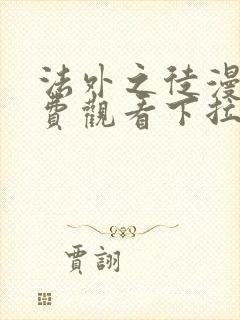 法外之徒漫
費觀看下拉
賈詡